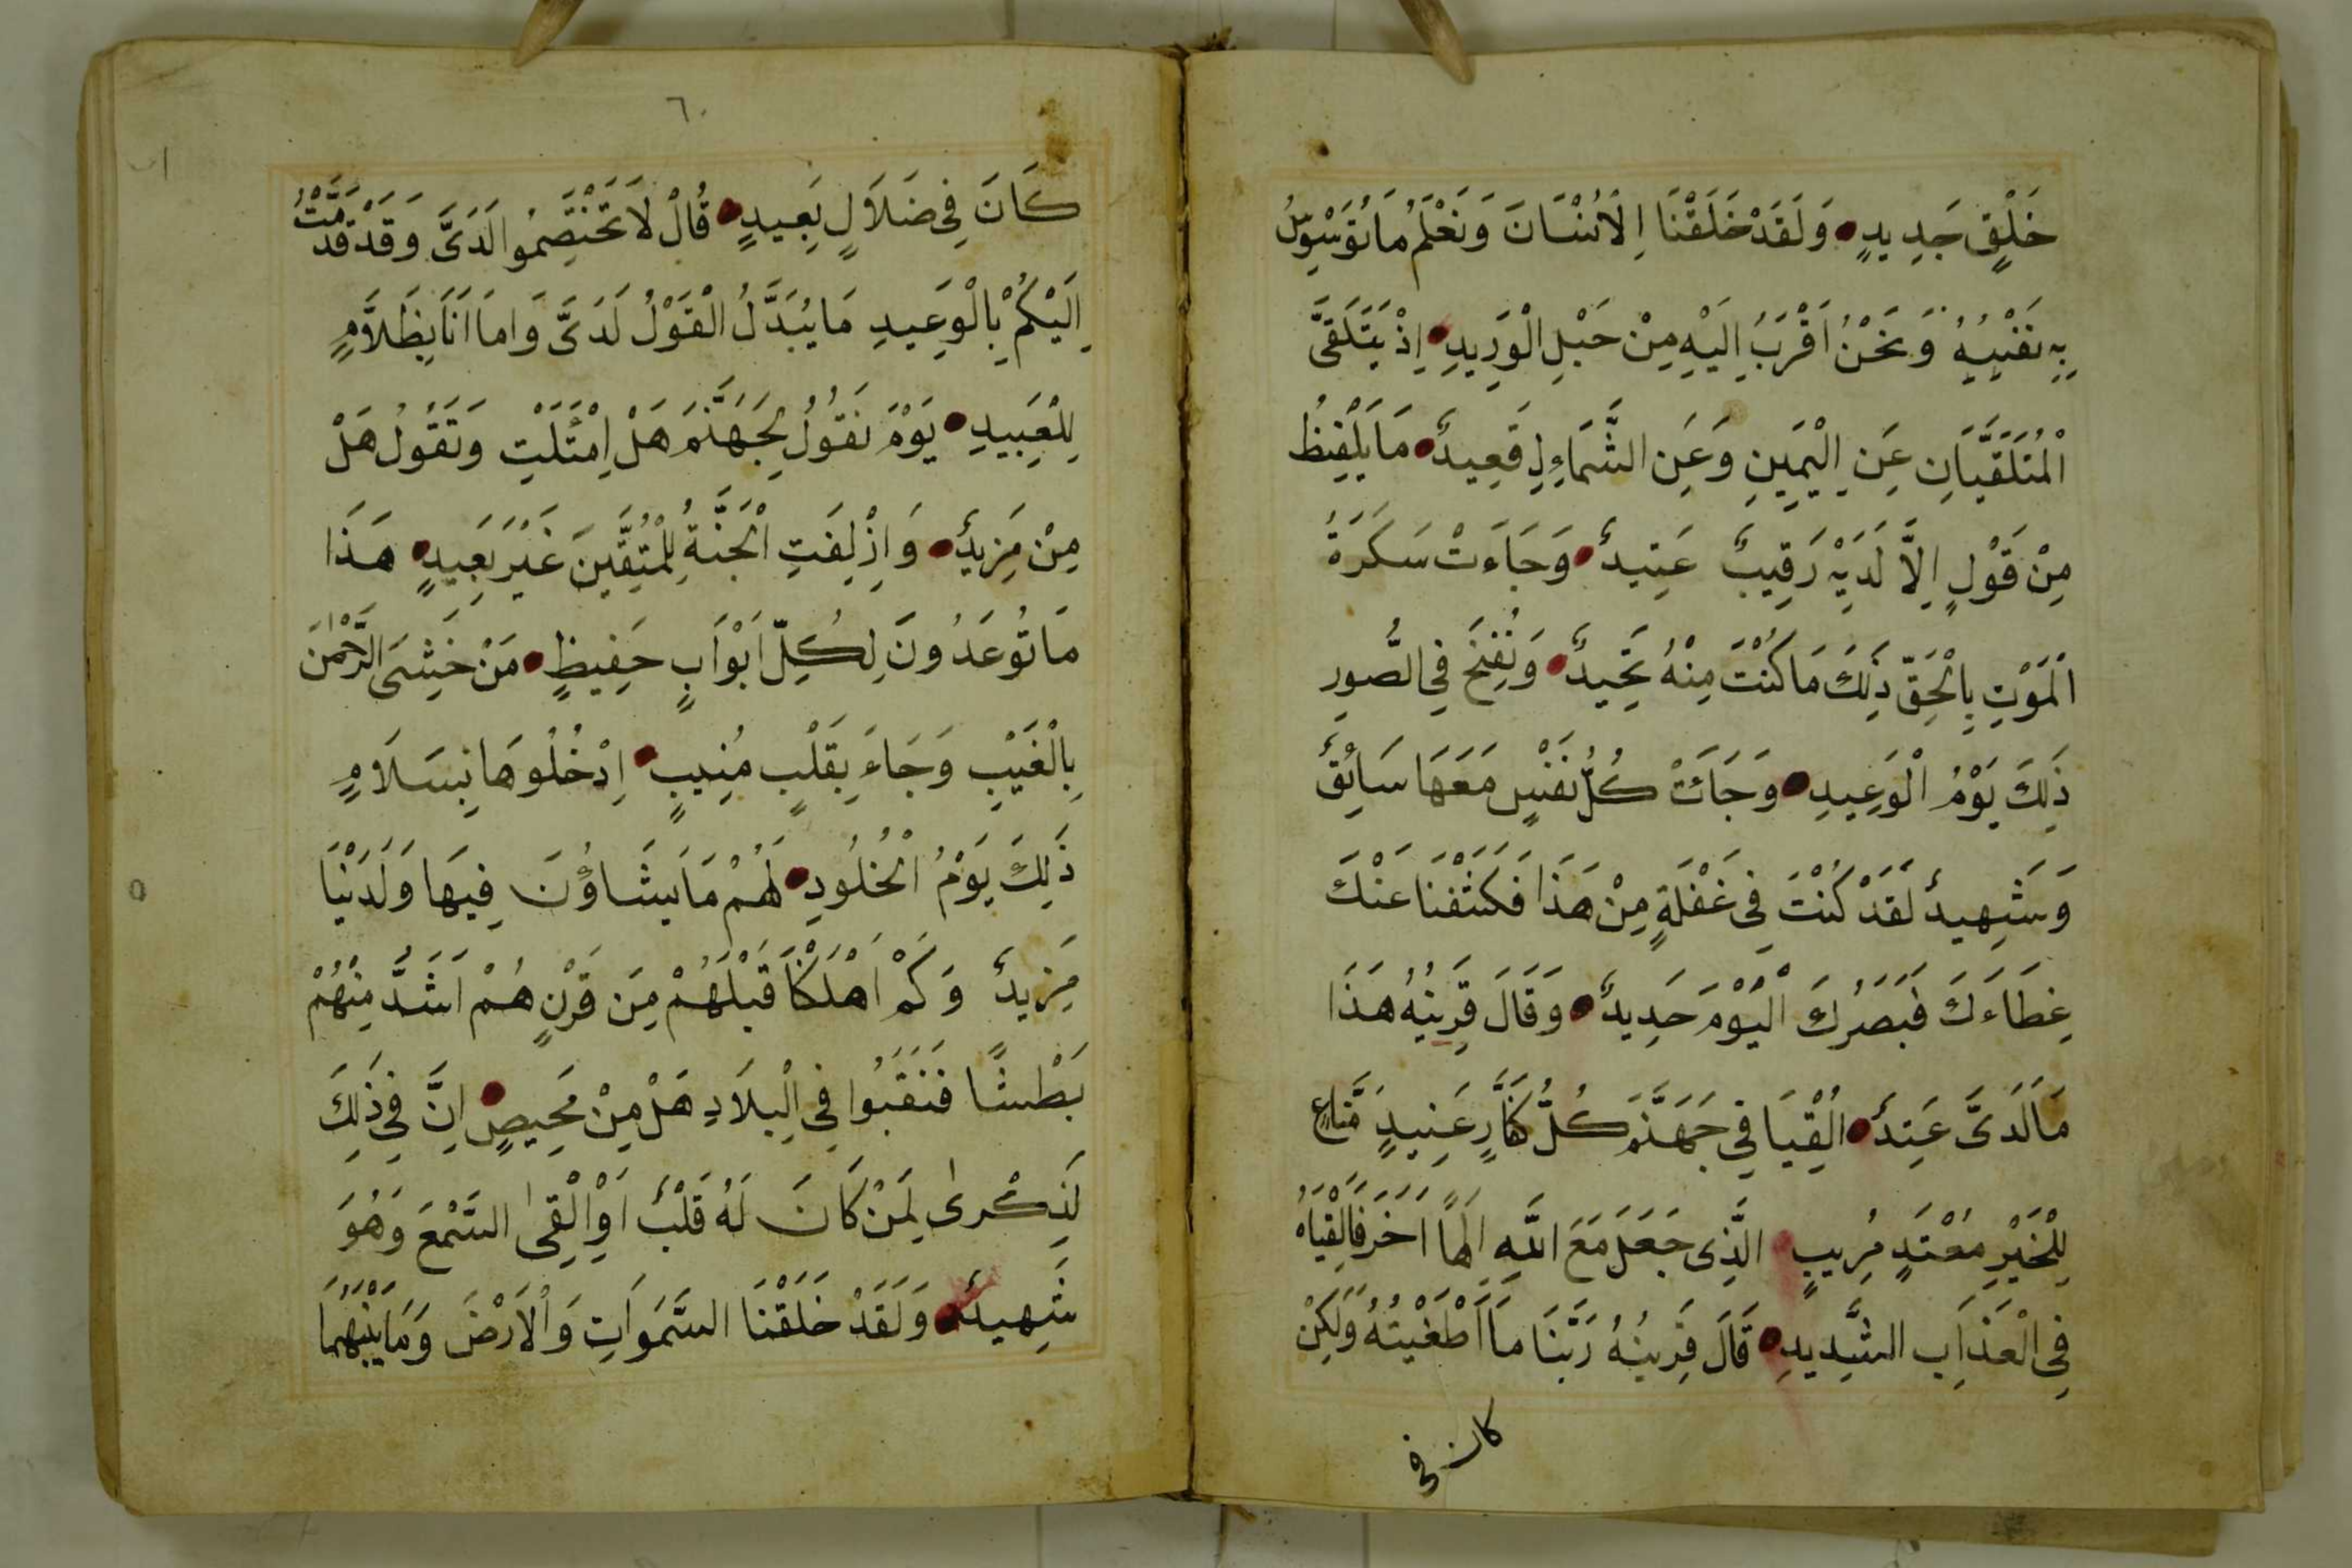 خَلْقٍ جَدِيدٍ وَلَقَدْ خَلَقْنَا اِلْاُنْسَانَ وَنَعْلَمُ مَا تُوَسْوِسُ
بِهِ نَفْسِهُ وَنَحْنُ اَقْرَبُ اِلَيْهِ مِنْ حَبْلِ الْوَرِيدِ اِذْ يَتَلَقَّى
الْمُتَلَقِّيَانِ عَنِ الْيَمِينِ وَعَنِ الشَّمَاءِلِ قَعِيدٌ مَا يَلْفِظُ
مِنْ قَوْلٍ اِلَّا لَدَيْهِ رَقِيبٌ عَتِيدٌ وَجَاءَتْ سَكَرَةُ
الْمَوْتِ بِالْحَقِّ ذَلِكَ مَا كُنْتَ مِنْهُ تَحِيدٌ وَنُفِخَ فِي الصُّورِ
ذَلِكَ يَوْمُ الْوَعِيدِ وَجَائَتْ كُلُّ نَفْسٍ مَعَهَا سَائِقٌ
وَشَهِيدٌ لَقَدْ كُنْتَ فِي غَفْلَةٍ مِنْ هَذَا فَكَشَفْنَا عَنْكَ
غِطَاءَكَ فَبَصَرُكَ الْيَوْمَ حَدِيدٌ وَقَالَ قَرِينُهُ هَذَا
مَا لَدَىَّ عَتِدٌ اَلْقِيَا فِي جَهَنَّمَ كُلَّ كَفَّارٍ عَنِيدٍ مَّنَّاعٍ
لِلْخَيْرِ مُعْتَدٍ مُرِيبٍ الَّذِى جَعَلَ مَعَ اللَّهِ اِلَهًا اَخَرَ فَالْقِيَاهُ
فِى الْعَذَابِ الشَّدِيدِ قَالَ قَرِينُهُ رَبَّنَا مَا اَطْغَيْتُهُ وَلَكِنْ
كان في
٦٠
كَانَ فِي ضَلَالٍ بَعِيدٍ قُالْ لَا تَخْتَصِمُوا لَدَىَّ وَقَدْ قَدَّمْتُ
اِلَيْكُمْ بِالْوَعِيدِ مَا يُبَدَّلُ الْقَوْلُ لَدَىَّ وَامَا اَنَا بِظَلَّامٍ
لِلْعَبِيدِ يَوْمَ نَقُولُ لِجَهَنَّمَ هَلْ اِمْتَلَئَتِ وَتَقُولُ هَلْ
مِنْ مَزِيدٌ وَاِزْلِفَتِ الْجَنَّةُ لِلْمُتَّقِينَ غَيْرَ بَعِيدٍ هَذَا
مَا تُوعَدُونَ لِكُلِّ اَبْوَابٍ حَفِيظٍ مَنْ خَشِىَ الرَّحْمٰنَ
بِالْغَيْبِ وَجَاءَ بِقَلْبٍ مُنِيبٍ اِدْخُلُوهَا بِسَلَامٍ
ذَلِكَ يَوْمُ الْخُلُودِ لَهُمْ مَا يَشَاؤُنَ فِيهَا وَلَدَيْنَا
مَزِيدٌ وَكَمْ اَهْلَكْنَا قَبْلَهُمْ مِنَ قَرْنٍ هُمْ اَشَدُّ مِنْهُمْ
بَطْشًا فَنَقَبُوا فِي الْبِلَادِ هَلْ مِنْ مَحِيصٍ اِنَّ فِي ذَلِكَ
لَذِكْرىٰ لِمَنْ كَانَ لَهُ قَلْبٌ اَوْ اَلْقِىٰ السَّمْعَ وَهُوَ
شَهِيدٌ وَلَقَدْ خَلَقْنَا السَّمَوَاتِ وَالْاَرْضَ وَمَا بَيْنَهُمَا